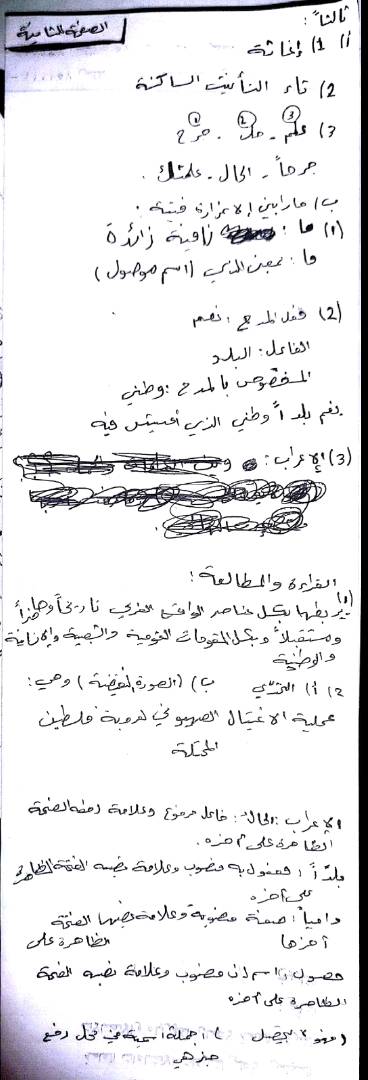 الصفحة الثانية
ثالثاً:
أ) 1) إغاثة
2) تاء التأنيث الساكنة
3) علم - حل - جرح
3 2 1
جرحاً - الحال - علمتك.
ب) ما رأيتُ إلا غزارة فتية.
(1) ما: نافية زائدة
ما: بمعنى الذي (اسم موصول)
(2) فعل المدح: نعم
الفاعل: البلد
المخصوص بالمدح: وطني
نعم بلداً وطني الذي أعيش فيه
(3) الإعراب:
القراءة والمطالعة:
(1) يربطها بكل عناصر الواقع العربي تاريخاً وحاضراً
ومستقبلاً وبكل المقومات القومية والشعبية والإنسانية
والوطنية
2) أ) التحدّي ب) (الصورة البغيضة) وهي:
عملية الاغتيال الصهيوني لعروبة فلسطين
المحتلة
الإعراب: الحال: فاعل مرفوع وعلامة رفعه الضمة
الظاهرة على آخره.
بلداً: مفعول به منصوب وعلامة نصبه الفتحة الظاهرة
على آخره
دامياً: صفة منصوبة وعلامة نصبها الفتحة
الظاهرة على آخرها
حصول: اسم إن منصوب وعلامة نصبه الفتحة
الظاهرة على آخره
جملة اسمية في محل رفع
خبر هي